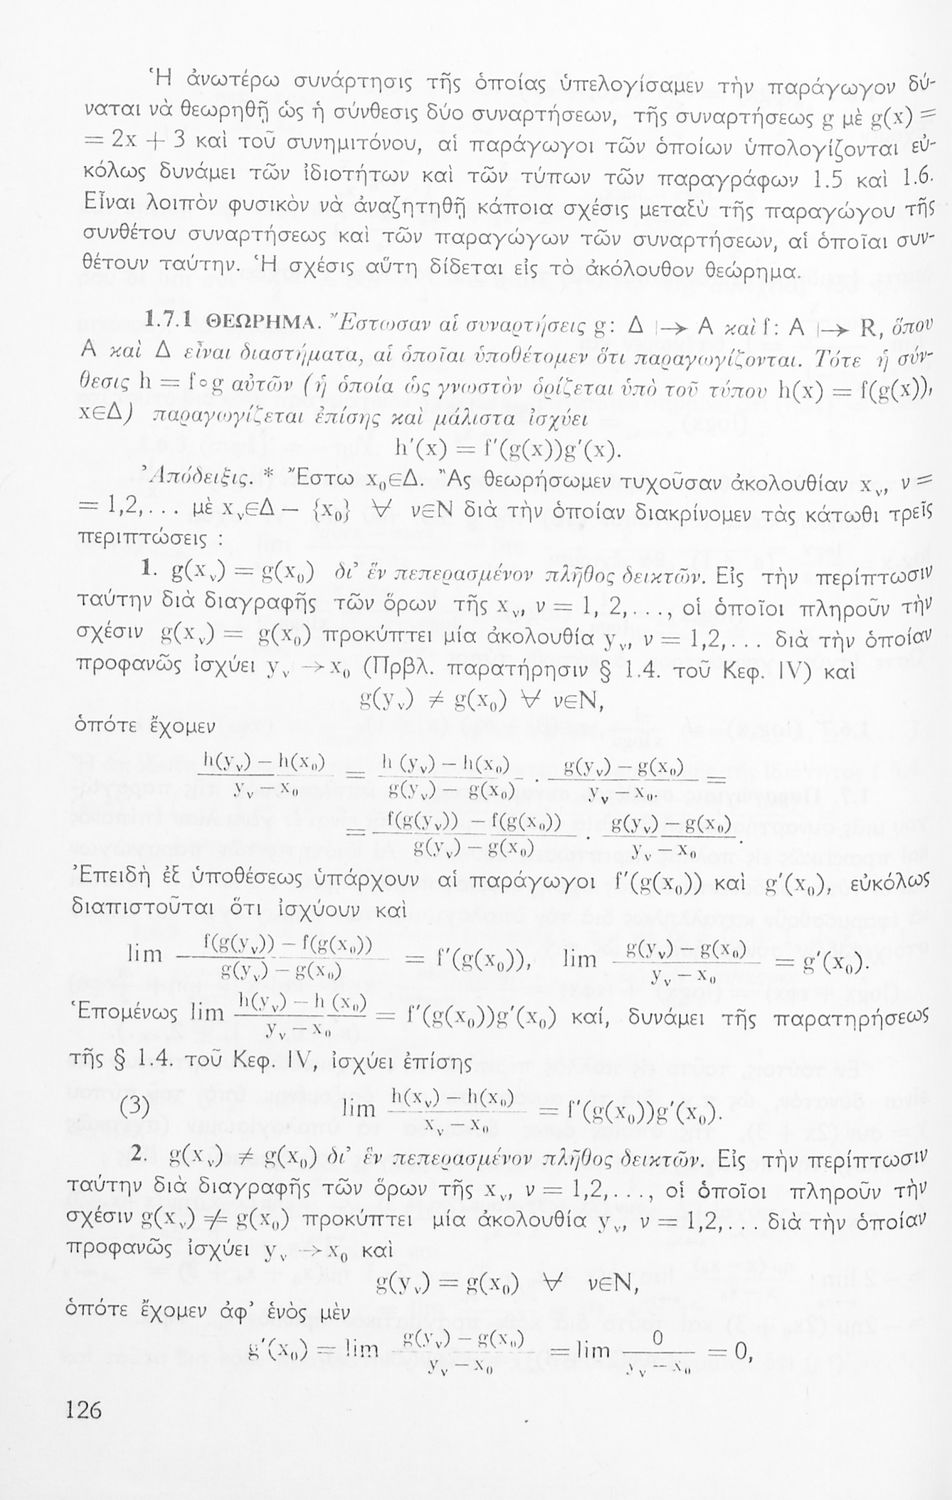 Ἡ ἀνωτέρω συνάρτησις τῆς ὁποίας ὑπελογίσαμεν τὴν παράγωγον δύ-
ναται νὰ θεωρηθῇ ὡς ἡ σύνθεσις δύο συναρτήσεων, τῆς συναρτήσεως g μὲ g(x) =
= 2x + 3 καὶ τοῦ συνημιτόνου, αἱ παράγωγοι τῶν ὁποίων ὑπολογίζονται εὐ-
κόλως δυνάμει τῶν ἰδιοτήτων καὶ τῶν τύπων τῶν παραγράφων 1.5 καὶ 1.6.
Εἶναι λοιπὸν φυσικὸν νὰ ἀναζητηθῇ κάποια σχέσις μεταξὺ τῆς παραγώγου τῆς
συνθέτου συναρτήσεως καὶ τῶν παραγώγων τῶν συναρτήσεων, αἱ ὁποῖαι συν-
θέτουν ταύτην. Ἡ σχέσις αὕτη δίδεται εἰς τὸ ἀκόλουθον θεώρημα.
1.7.1 ΘΕΩΡΗΜΑ. Ἔστωσαν αἱ συναρτήσεις g: Δ |→ A καὶ f: A |→ R, ὅπου
A καὶ Δ εἶναι διαστήματα, αἱ ὁποῖαι ὑποθέτομεν ὅτι παραγωγίζονται. Τότε ἡ σύν-
θεσις h = f∘g αὐτῶν (ἡ ὁποία ὡς γνωστὸν ὁρίζεται ὑπὸ τοῦ τύπου h(x) = f(g(x)),
xεΔ) παραγωγίζεται ἐπίσης καὶ μάλιστα ἰσχύει
h′(x) = f′(g(x))g′(x).
Ἀπόδειξις. * Ἔστω x₀εΔ. Ἄς θεωρήσωμεν τυχοῦσαν ἀκολουθίαν xᵥ, ν =
= 1,2,... μὲ xᵥεΔ — {x₀} ∀ νεN διὰ τὴν ὁποίαν διακρίνομεν τὰς κάτωθι τρεῖς
περιπτώσεις :
1. g(xᵥ) = g(x₀) δι’ ἓν πεπερασμένον πλῆθος δεικτῶν. Εἰς τὴν περίπτωσιν
ταύτην διὰ διαγραφῆς τῶν ὅρων τῆς xᵥ, ν = 1, 2,..., οἱ ὁποῖοι πληροῦν τὴν
σχέσιν g(xᵥ) = g(x₀) προκύπτει μία ἀκολουθία yᵥ, ν = 1,2,... διὰ τὴν ὁποίαν
προφανῶς ἰσχύει yᵥ → x₀ (Πρβλ. παρατήρησιν § 1.4. τοῦ Κεφ. IV) καὶ
g(yᵥ) ≠ g(x₀) ∀ νεN,
ὁπότε ἔχομεν
h(yᵥ) — h(x₀) / yᵥ — x₀ = h (yᵥ) — h(x₀) / g(yᵥ) — g(x₀) · g(yᵥ) — g(x₀) / yᵥ — x₀. =
= f(g(yᵥ)) — f(g(x₀)) / g(yᵥ) — g(x₀) · g(yᵥ) — g(x₀) / yᵥ — x₀ .
Ἐπειδὴ ἐξ ὑποθέσεως ὑπάρχουν αἱ παράγωγοι f′(g(x₀)) καὶ g′(x₀), εὐκόλως
διαπιστοῦται ὅτι ἰσχύουν καὶ
lim f(g(yᵥ)) — f(g(x₀)) / g(yᵥ) — g(x₀) = f′(g(x₀)), lim g(yᵥ) — g(x₀) / yᵥ — x₀ = g′(x₀).
Ἑπομένως lim h(yᵥ) — h (x₀) / yᵥ — x₀ = f′(g(x₀))g′(x₀) καί, δυνάμει τῆς παρατηρήσεως
τῆς § 1.4. τοῦ Κεφ. IV, ἰσχύει ἐπίσης
(3) lim h(xᵥ) — h(x₀) / xᵥ — x₀ = f′(g(x₀))g′(x₀).
2. g(xᵥ) ≠ g(x₀) δι’ ἓν πεπερασμένον πλῆθος δεικτῶν. Εἰς τὴν περίπτωσιν
ταύτην διὰ διαγραφῆς τῶν ὅρων τῆς xᵥ, ν = 1,2,..., οἱ ὁποῖοι πληροῦν τὴν
σχέσιν g(xᵥ) ≠ g(x₀) προκύπτει μία ἀκολουθία yᵥ, ν = 1,2,... διὰ τὴν ὁποίαν
προφανῶς ἰσχύει yᵥ → x₀ καὶ
g(yᵥ) = g(x₀) ∀ νεN,
ὁπότε ἔχομεν ἀφ’ ἑνὸς μὲν
g′(x₀) = lim g(yᵥ) — g(x₀) / yᵥ — x₀ = lim 0 / yᵥ — x₀ = 0,
126